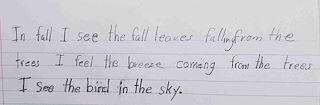 In fall I see the fall leaves falling from the
trees I feel the breeze comeing from the trees
I see the bird in the sky.